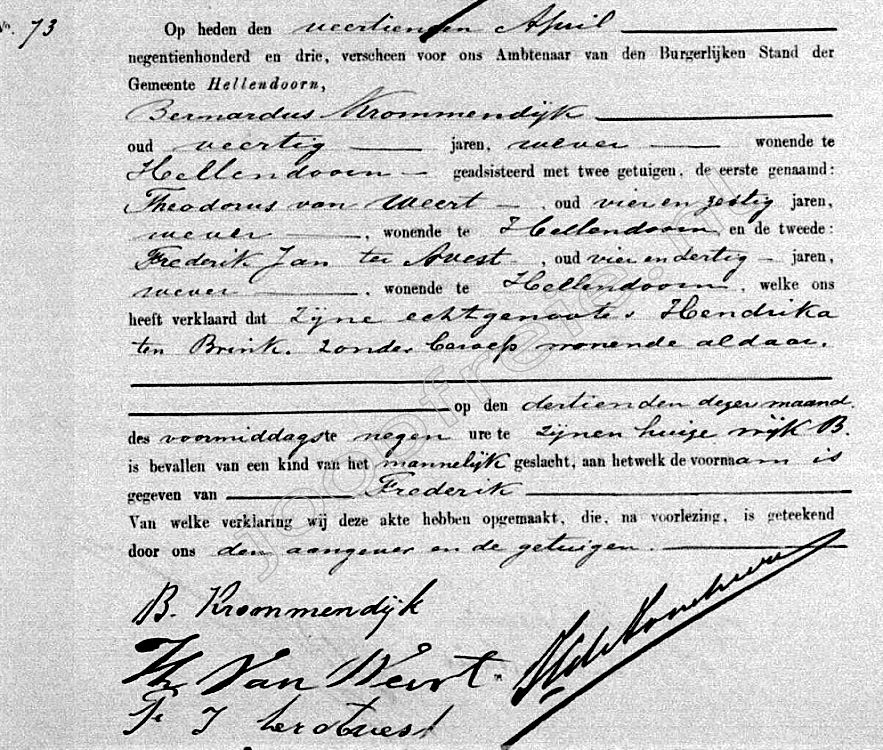 No. 73
Op heden den veertienden April
negentienhonderd en drie, verscheen voor ons Ambtenaar van den Burgerlijken Stand der
Gemeente Hellendoorn,
Bernardus Krommendijk
oud veertig jaren, wever wonende te
Hellendoorn geadsisteerd met twee getuigen, de eerste genaamd:
Theodorus van Weert, oud vier en zestig jaren,
wever, wonende te Hellendoorn en de tweede:
Frederik Jan ter Avest, oud vier en dertig jaren,
wever, wonende te Hellendoorn, welke ons
heeft verklaard dat zijne echtgenoote Hendrika
ten Brink. zonder beroep wonende aldaar.
op den dertienden dezer maand
des voormiddags te negen ure te zijnen huize wijk B.
is bevallen van een kind van het mannelijk geslacht, aan hetwelk de voornaam is
gegeven van Frederik
Van welke verklaring wij deze akte hebben opgemaakt, die, na voorlezing, is geteekend
door ons den aangever en de getuigen.
B. Krommendijk
Th Van Weert
Fr J ter Avest
joopfreie.nl